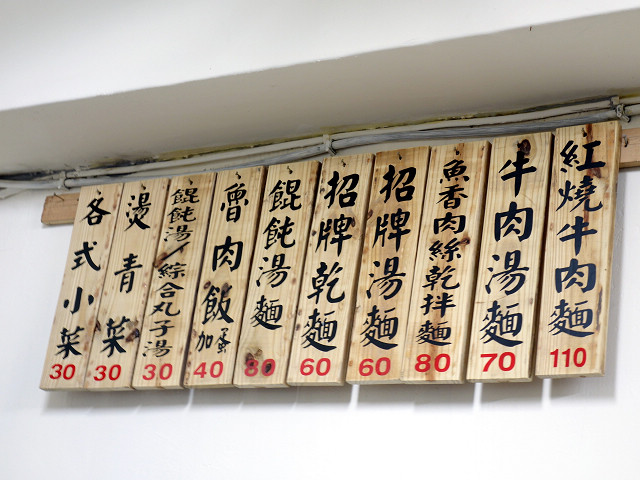 紅燒牛肉麵
110
牛肉湯麵
70
魚香肉絲乾拌麵
80
招牌湯麵
60
招牌乾麵
60
餛飩湯麵
80
魯肉飯 加蛋
40
餛飩湯／綜合丸子湯
30
燙青菜
30
各式小菜
30